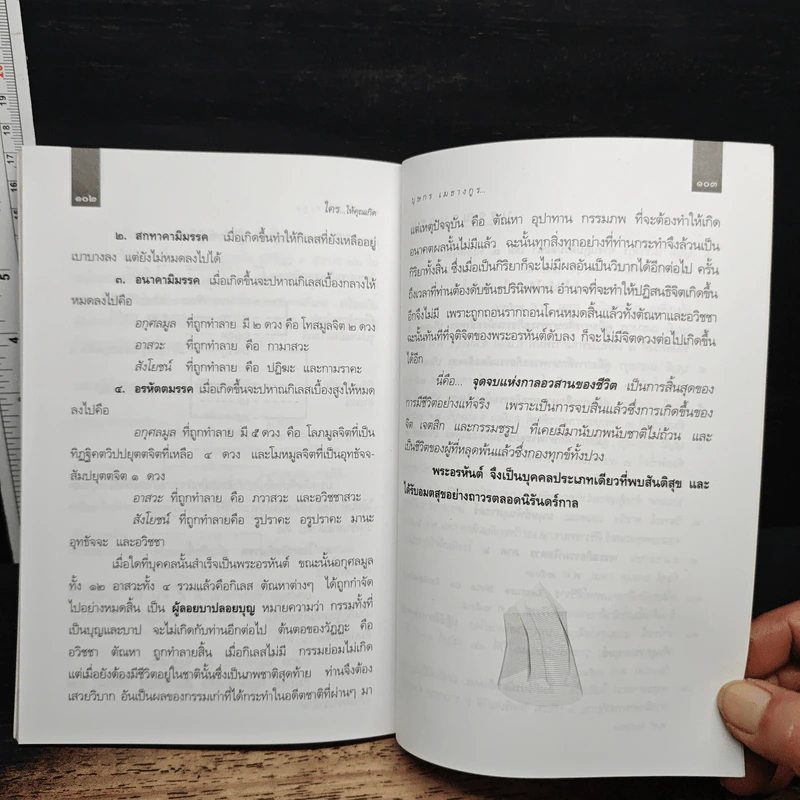 ๑๐๒
ใคร...ให้คุณเกิด
๒. สกทาคามิมรรค เมื่อเกิดขึ้นทำให้กิเลสที่ยังเหลืออยู่
เบาบางลง แต่ยังไม่หมดลงไปได้
๓. อนาคามิมรรค เมื่อเกิดขึ้นจะปหาณกิเลสเบื้องกลางให้
หมดลงไปคือ
อกุศลมูล ที่ถูกทำลาย มี ๒ ดวง คือ โทสมูลจิต ๒ ดวง
อาสวะ ที่ถูกทำลาย คือ กามาสวะ
สังโยชน์ ที่ถูกทำลาย คือ ปฏิฆะ และกามราคะ
๔. อรหัตตมรรค เมื่อเกิดขึ้นจะปหาณกิเลสเบื้องสูงให้หมด
ลงไปคือ
อกุศลมูล ที่ถูกทำลาย มี ๕ ดวง คือ โลภมูลจิตที่เป็น
ทิฏฐิคตวิปปยุตตจิตที่เหลือ ๔ ดวง และโมหมูลจิตที่เป็นอุทธัจจ-
สัมปยุตตจิต ๑ ดวง
อาสวะ ที่ถูกทำลาย คือ ภวาสวะ และอวิชชาสวะ
สังโยชน์ ที่ถูกทำลายคือ รูปราคะ อรูปราคะ มานะ
อุทธัจจะ และอวิชชา
เมื่อใดที่บุคคลนั้นสำเร็จเป็นพระอรหันต์ ขณะนั้นอกุศลมูล
ทั้ง ๑๒ อาสวะทั้ง ๔ รวมแล้วคือกิเลส ตัณหาต่างๆ ได้ถูกกำจัด
ไปอย่างหมดสิ้น เป็น ผู้ลอยบาปลอยบุญ หมายความว่า กรรมทั้งที่
เป็นบุญและบาป จะไม่เกิดกับท่านอีกต่อไป ต้นตอของวัฏฏะ คือ
อวิชชา ตัณหา ถูกทำลายสิ้น เมื่อกิเลสไม่มี กรรมย่อมไม่เกิด
แต่เมื่อยังต้องมีชีวิตอยู่ในชาตินั้นซึ่งเป็นภพชาติสุดท้าย ท่านจึงต้อง
เสวยวิบาก อันเป็นผลของกรรมเก่าที่ได้กระทำในอดีตชาติที่ผ่านๆ มา
๑๐๓
บุษกร เมธางกูร...
แต่เหตุปัจจุบัน คือ ตัณหา อุปาทาน กรรมภพ ที่จะต้องทำให้เกิด
อนาคตผลนั้นไม่มีแล้ว ฉะนั้นทุกสิ่งทุกอย่างที่ท่านกระทำจึงล้วนเป็น
กิริยาทั้งสิ้น ซึ่งเมื่อเป็นกิริยาก็จะไม่มีผลอันเป็นวิบากได้อีกต่อไป ครั้น
ถึงเวลาที่ท่านต้องดับขันธปรินิพพาน อำนาจที่จะทำให้ปฏิสนธิจิตเกิดขึ้น
อีกจึงไม่มี เพราะถูกถอนรากถอนโคนหมดสิ้นแล้วทั้งตัณหาและอวิชชา
ฉะนั้นทันทีที่จุติจิตของพระอรหันต์ดับลง ก็จะไม่มีจิตดวงต่อไปเกิดขึ้น
ได้อีก
นี่คือ... จุดจบแห่งกาลอวสานของชีวิต เป็นการสิ้นสุดของ
การมีชีวิตอย่างแท้จริง เพราะเป็นการจบสิ้นแล้วซึ่งการเกิดขึ้นของ
จิต เจตสิก และกรรมชรูป ที่เคยมีมานับภพนับชาติไม่ถ้วน และ
เป็นชีวิตของผู้ที่หลุดพ้นแล้วซึ่งกองทุกข์ทั้งปวง
พระอรหันต์ จึงเป็นบุคคลประเภทเดียวที่พบสันติสุข และ
ได้รับอมตสุขอย่างถาวรตลอดนิรันดร์กาล
20
19
18
17
5
4